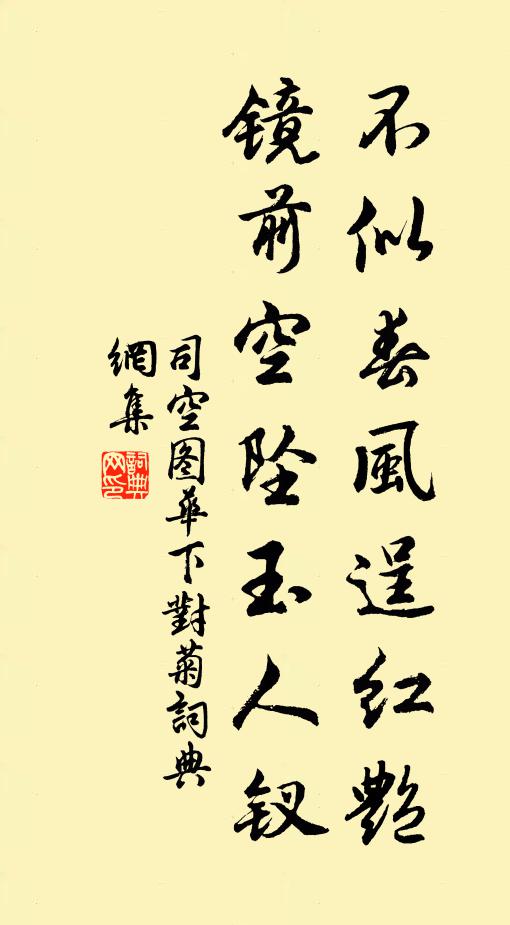 不似春風逞红艷
镜前空坠玉人钗
司空图華下對菊詞典
網集
詞典网印